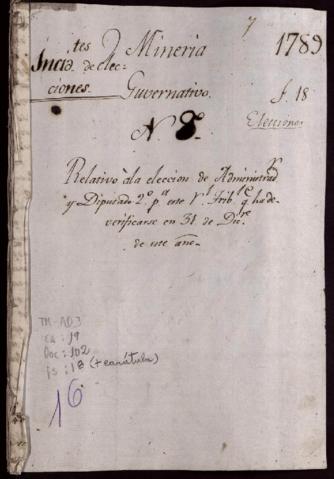 7
Mineria 1789
Incid.tes de elec-
ciones.
Guvernativo.
f. 18
Elecciones
N. 8.
Relativo â la eleccion de Administrad.r
y Diputado 2.º p.a este R.l Trib.l q.e ha de
verificarse en 31 de Dic.re
de este año-
TM-AD3
Ca: 19
Doc: 102
fs: 18 (+ carátula)
16